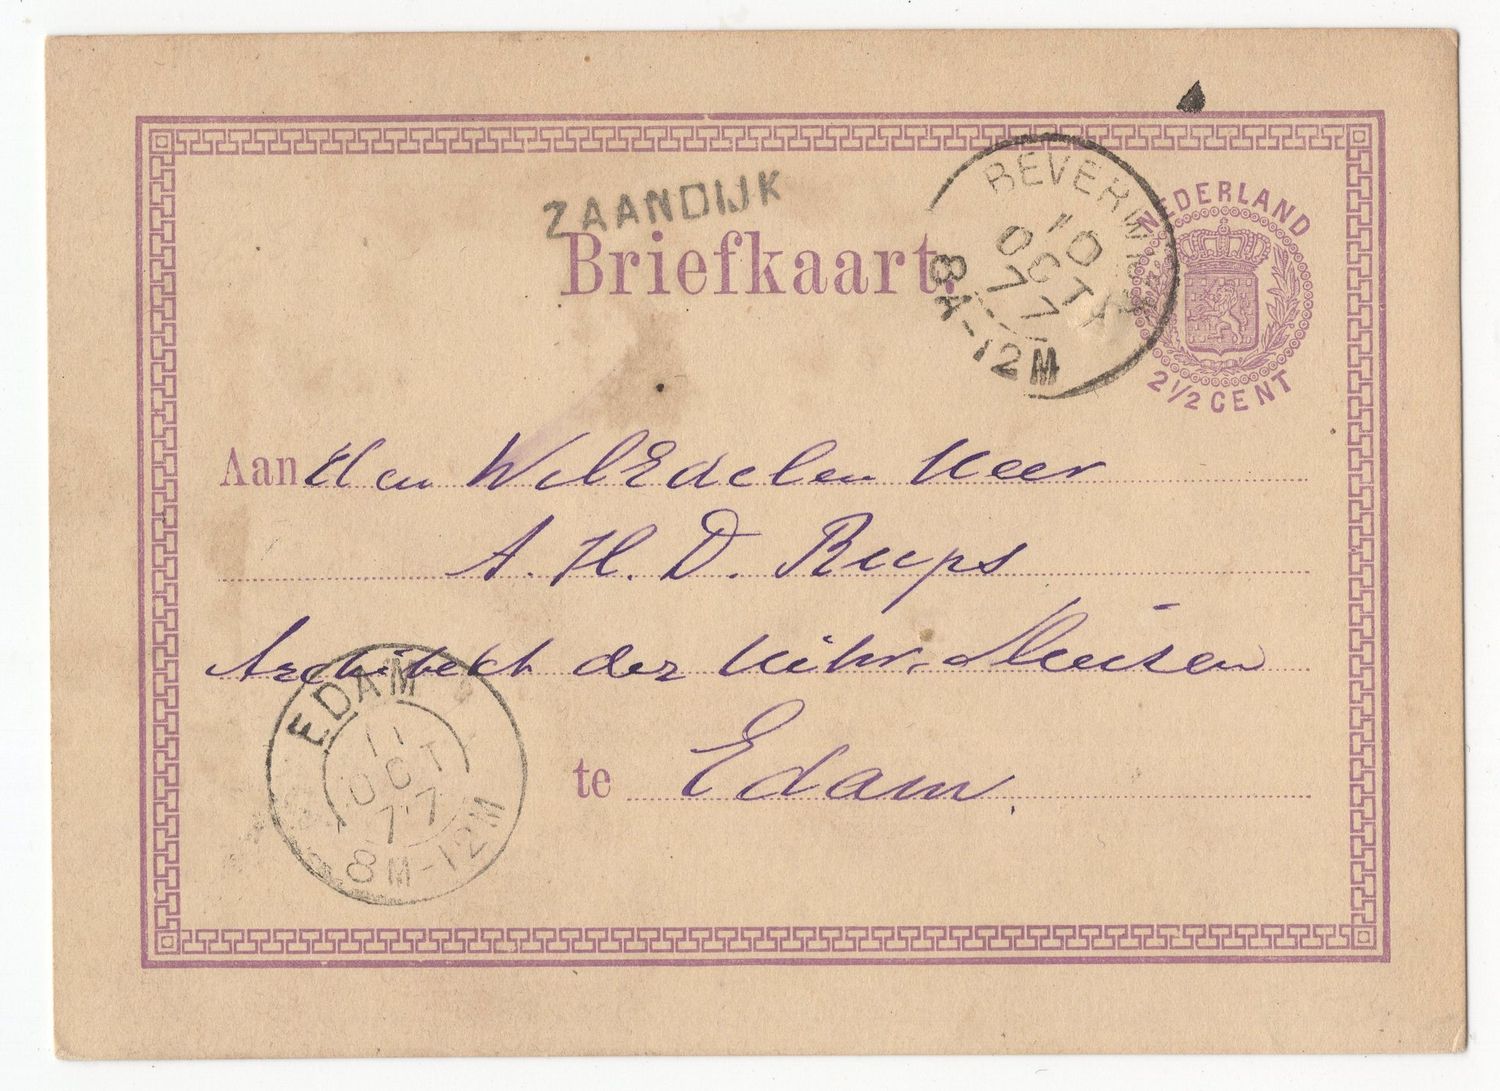 ZAANDIJK
BEVERWIJK
10
OCT
77
8A-12M
NEDERLAND
2 1/2 CENT
Briefkaart.
Aan den WelEdelen Heer
A. H. D. Rups
Architect der
te Edam.
EDAM
11
OCT
77
8M-12M